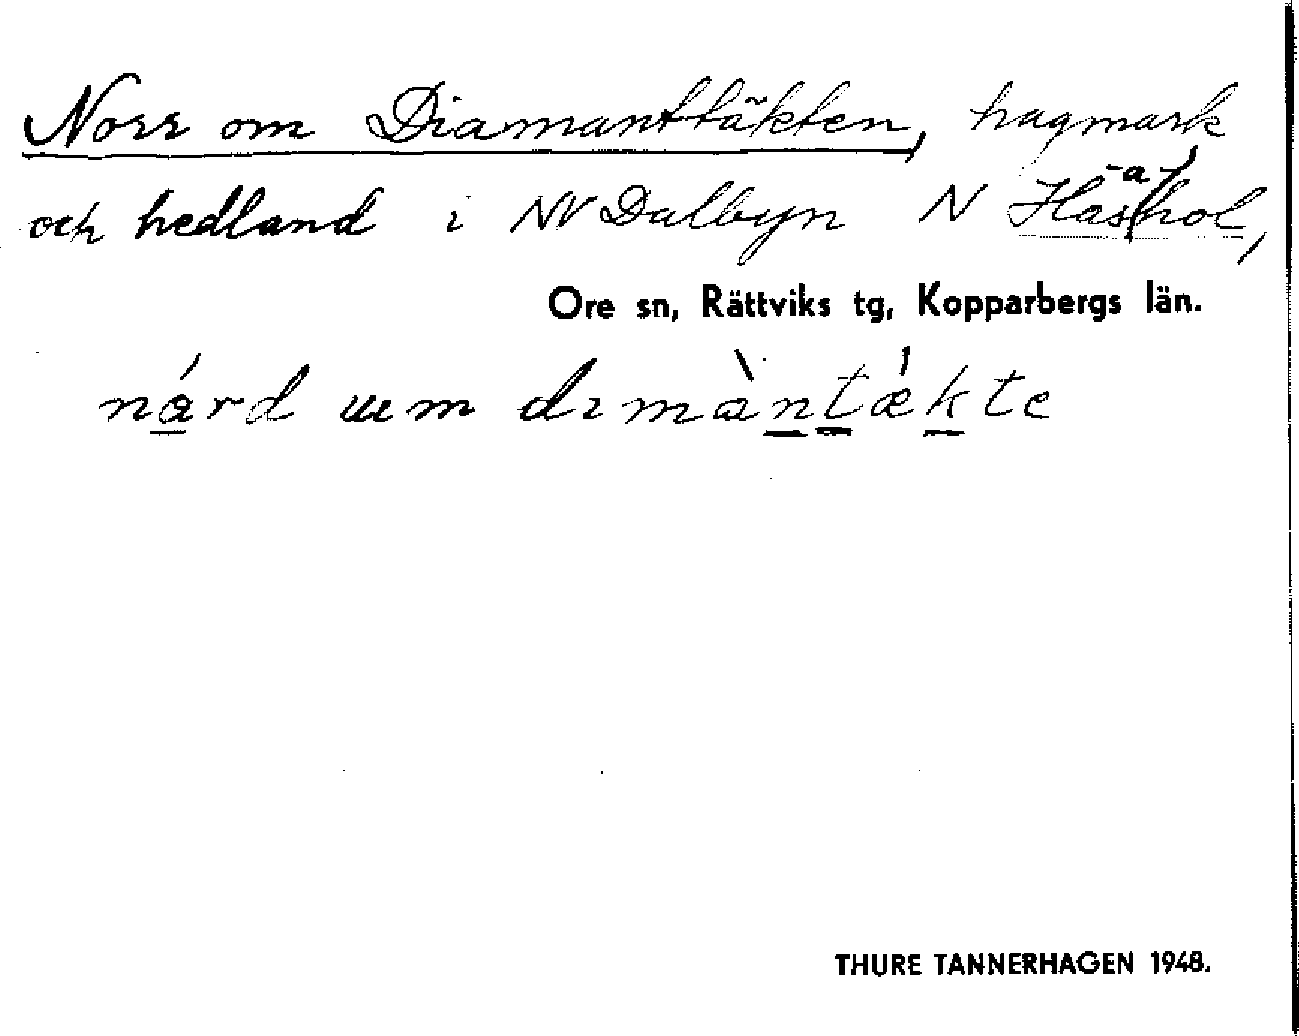 Norr om Diamanttäkten, hagmark
och hedland i NV Dalbyn N Häs(-a-)hol,
Ore sn, Rättviks tg, Kopparbergs län.
nárd um dımàntǽkte
THURE TANNERHAGEN 1948.